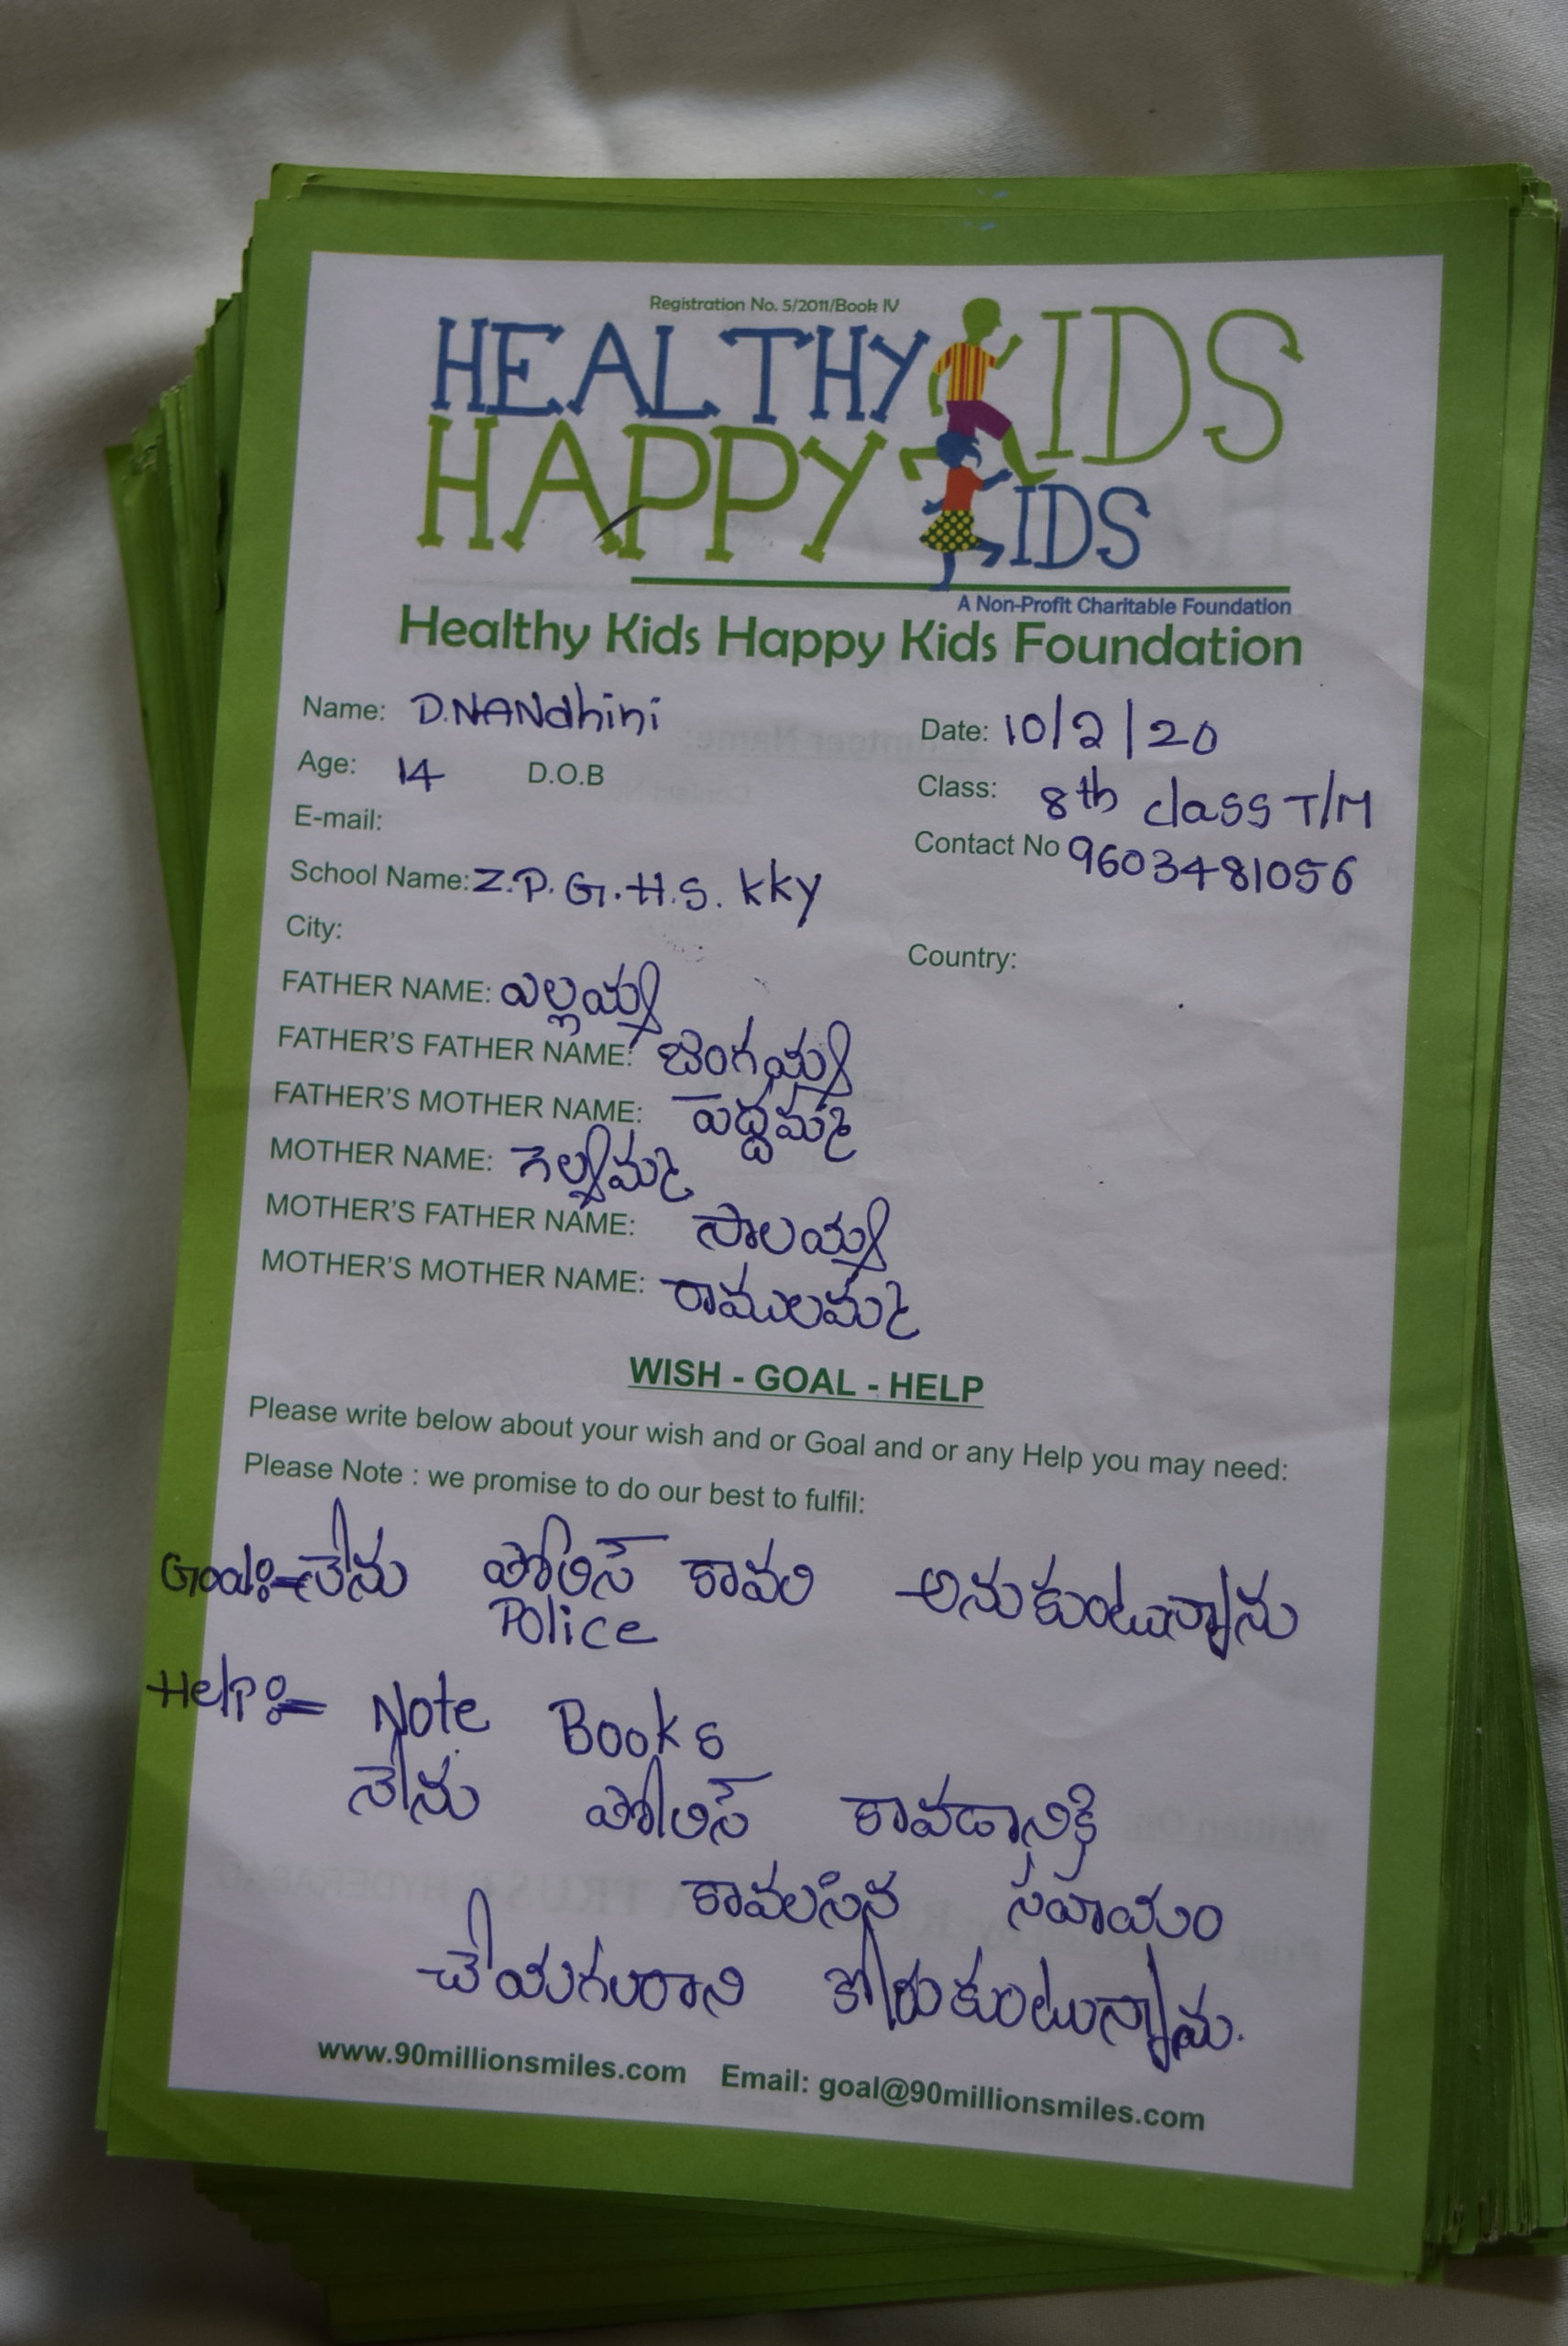 Registration No. 5/2011/Book IV
HEALTHY KIDS
HAPPY KIDS
A Non-Profit Charitable Foundation
Healthy Kids Happy Kids Foundation
Name: D.NANdhini
Date: 10/2/20
Age: 14 D.O.B
Class: 8th class T/M
E-mail:
Contact No 9603481056
School Name: Z.P.G.H.S. kky
City:
Country:
FATHER NAME: ఎల్లయ్య
FATHER'S FATHER NAME: జంగయ్య
FATHER'S MOTHER NAME: పెద్దమ్మ
MOTHER NAME: గెల్వమ్మ
MOTHER'S FATHER NAME: సాలయ్య
MOTHER'S MOTHER NAME: రాములమ్మ
WISH - GOAL - HELP
Please write below about your wish and or Goal and or any Help you may need:
Please Note : we promise to do our best to fulfil:
Goal:- నేను పోలిస్ కావలి అనుకుంటున్నాను
Police
Help:- Note Books
నేను పోలిస్ కావడానికి
కావలసిన సహయం
చేయగలరాని కోరుకుంటున్నామ.
www.90millionsmiles.com Email: goal@90millionsmiles.com